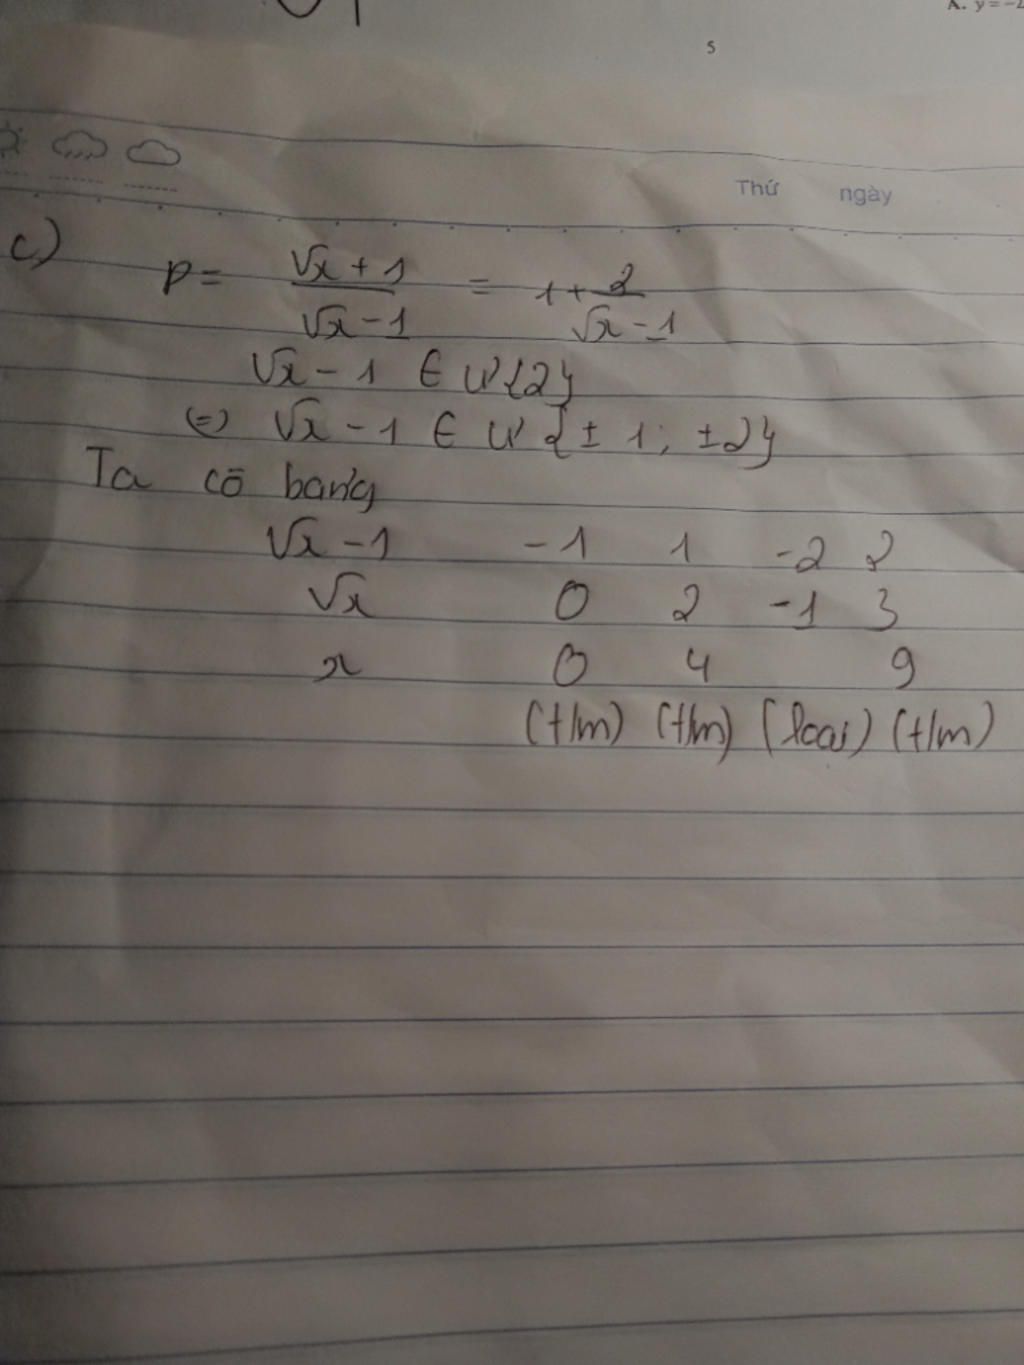 A. y = -2
5
Thứ ngày
c) P = √x + 1 / √x - 1 = 1 + 2 / √x - 1
√x - 1 ∈ Ư{2}
(=) √x - 1 ∈ Ư{± 1; ±2}
Ta có bảng
√x - 1 -1 1 -2 2
√x 0 2 -1 3
x 0 4 9
(t/m) (t/m) (loại) (t/m)